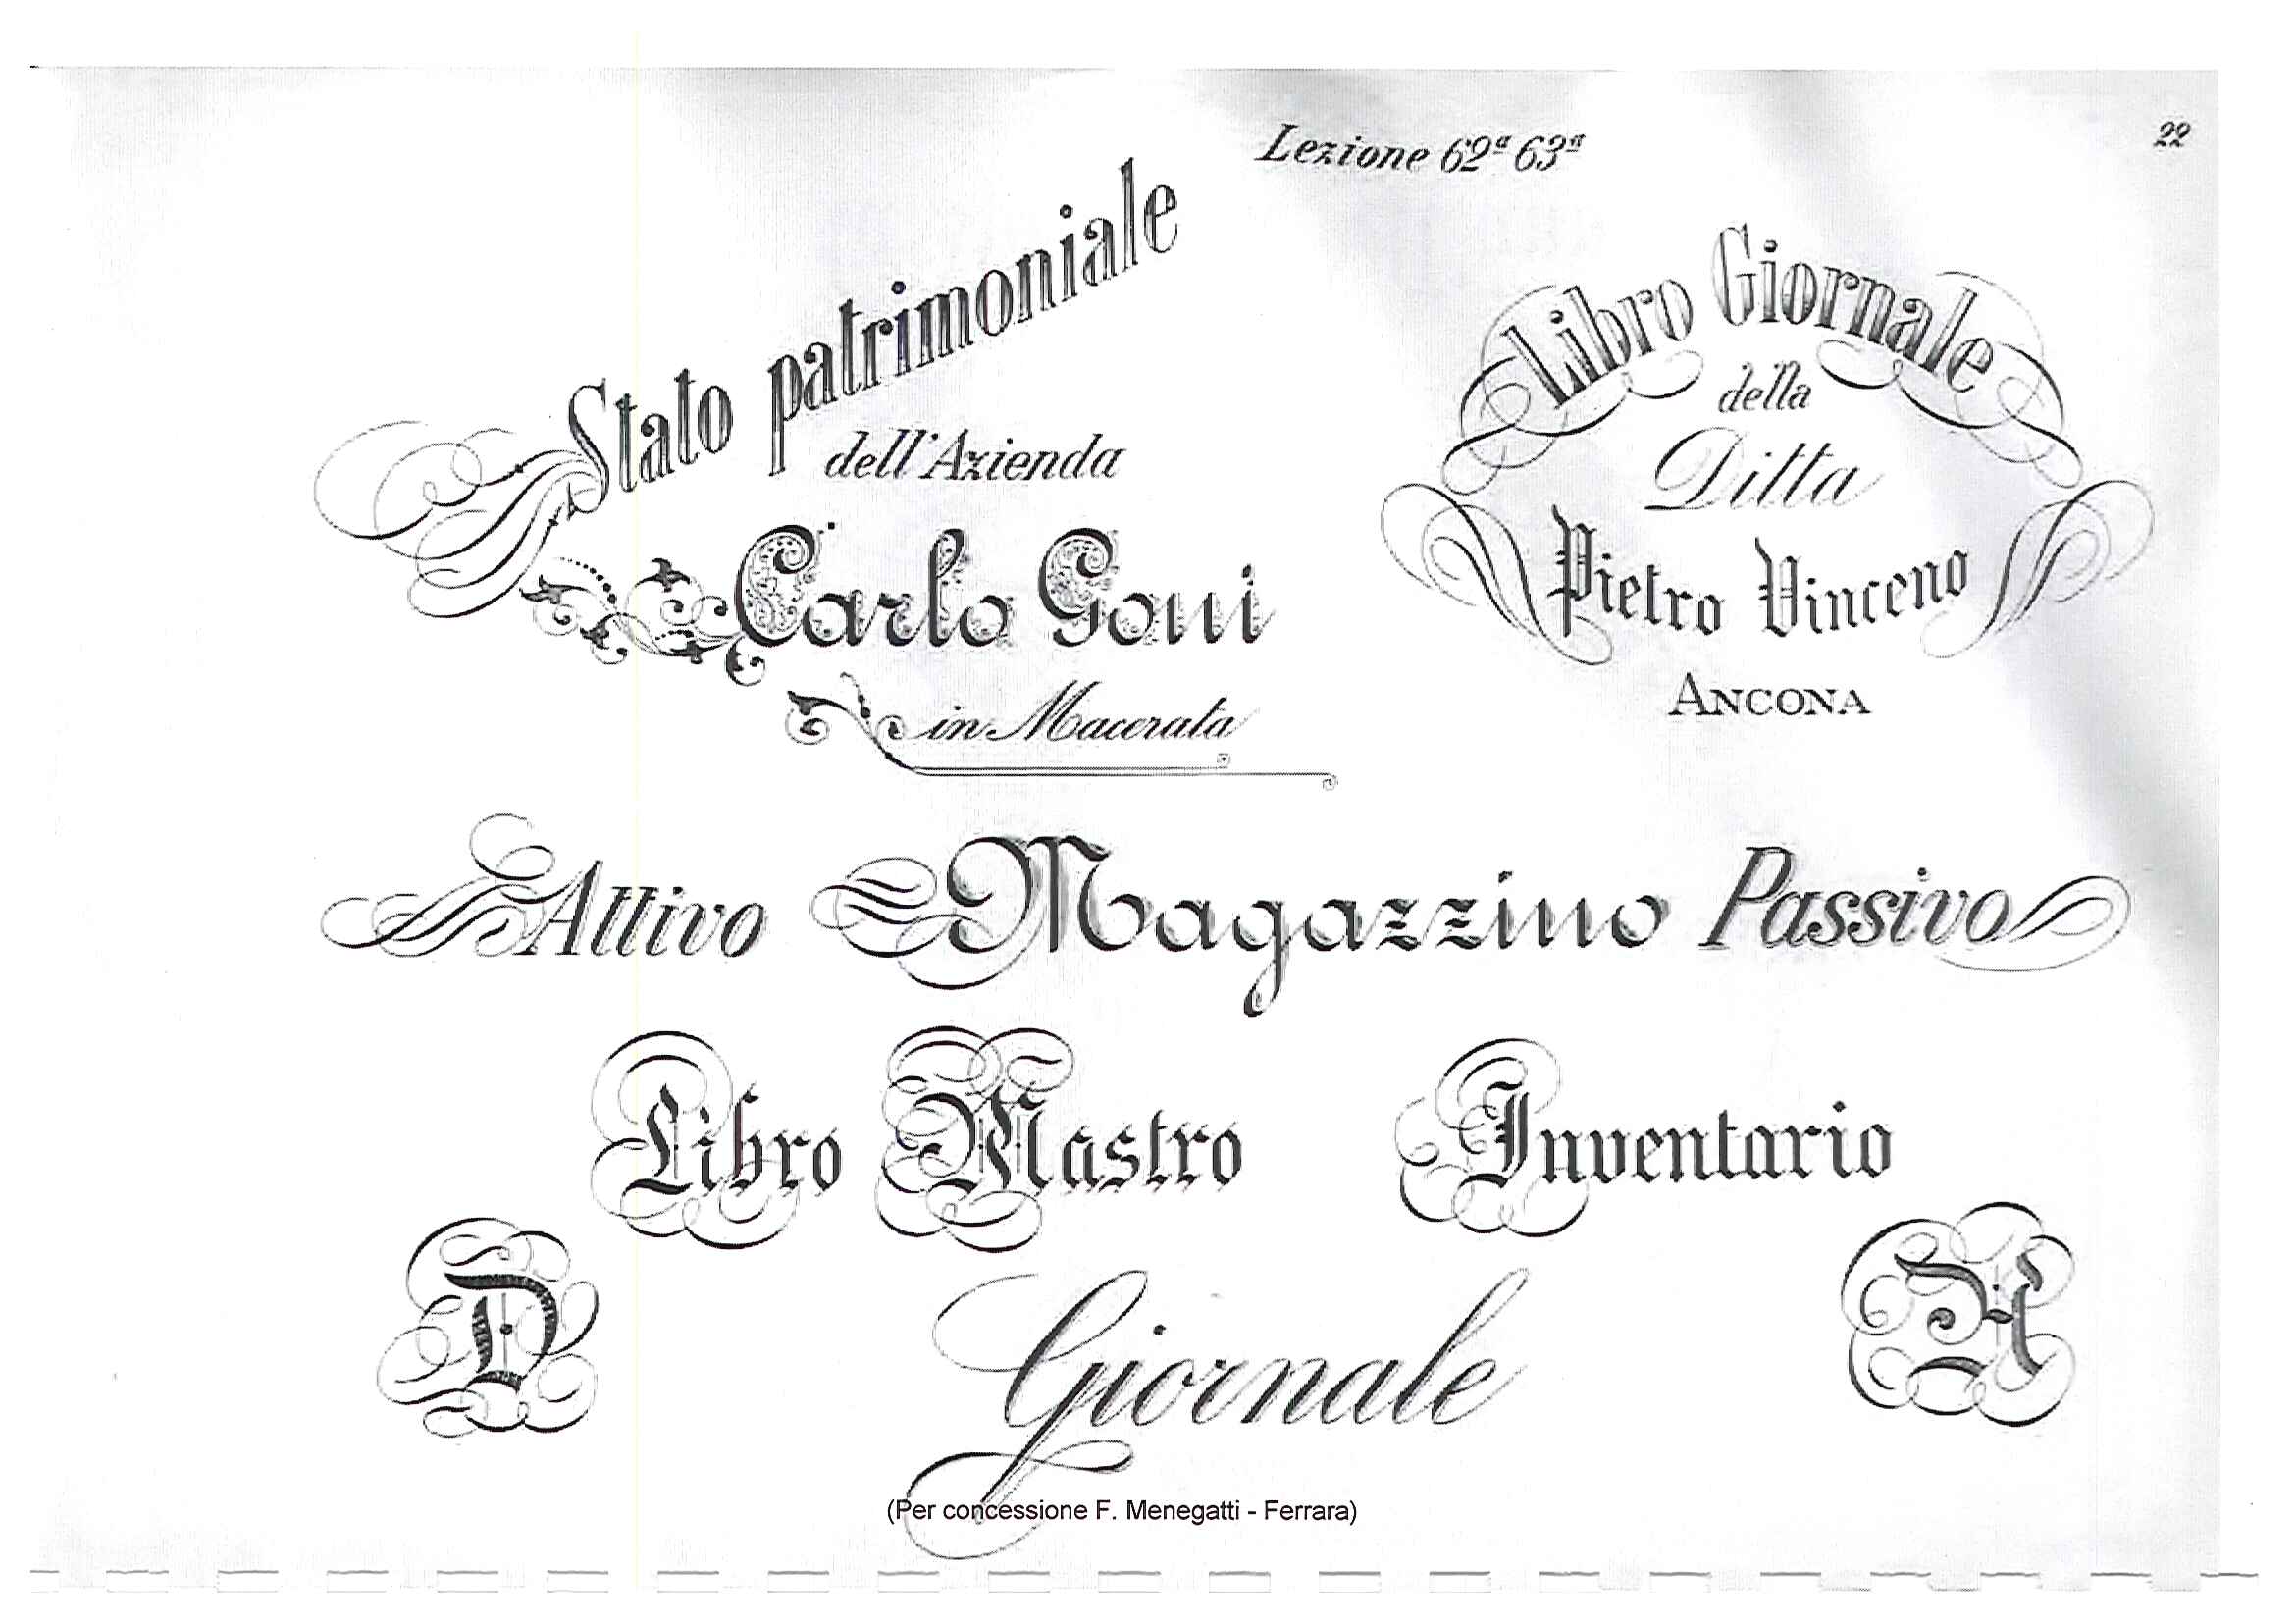 Lezione 62ª 63ª
22
Stato patrimoniale
dell'Azienda
Carlo Goni
in Macerata
Libro Giornale
della
Ditta
Pietro Vinceno
ANCONA
Attivo Magazzino Passivo
Libro Mastro Inventario
D
Giornale
(Per concessione F. Menegatti - Ferrara)